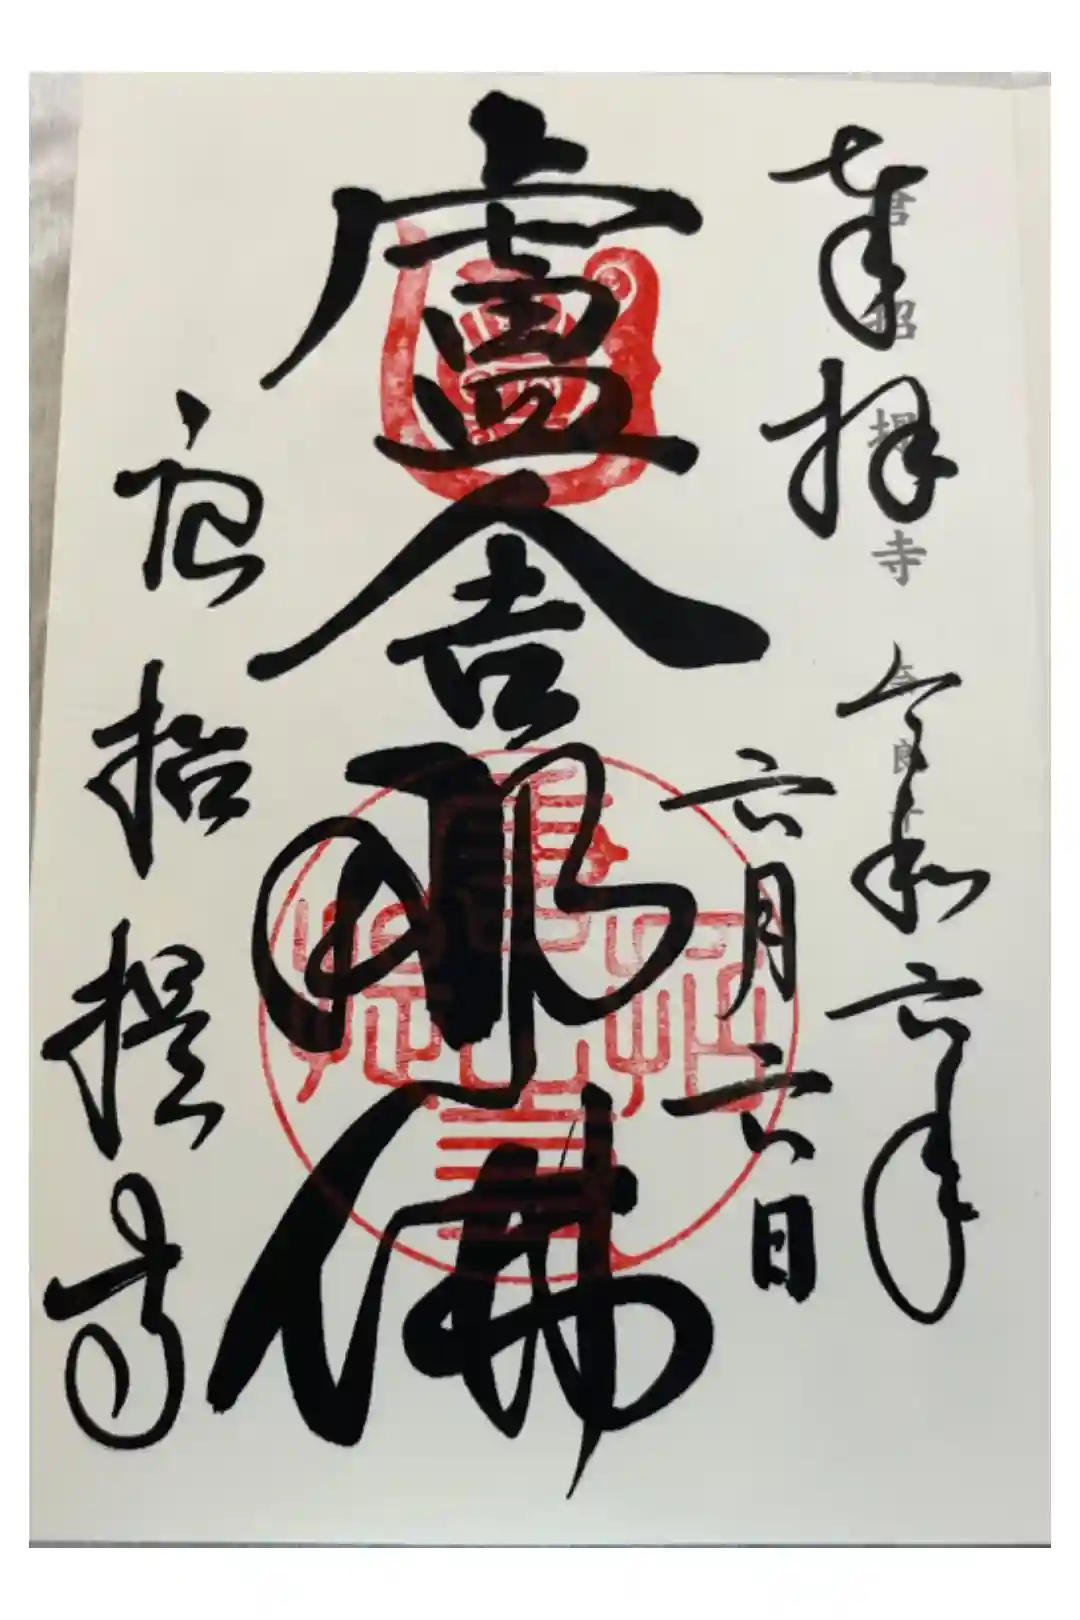 奉拝
唐招提寺
令和六年
六月六日
盧舎那佛
唐招提寺